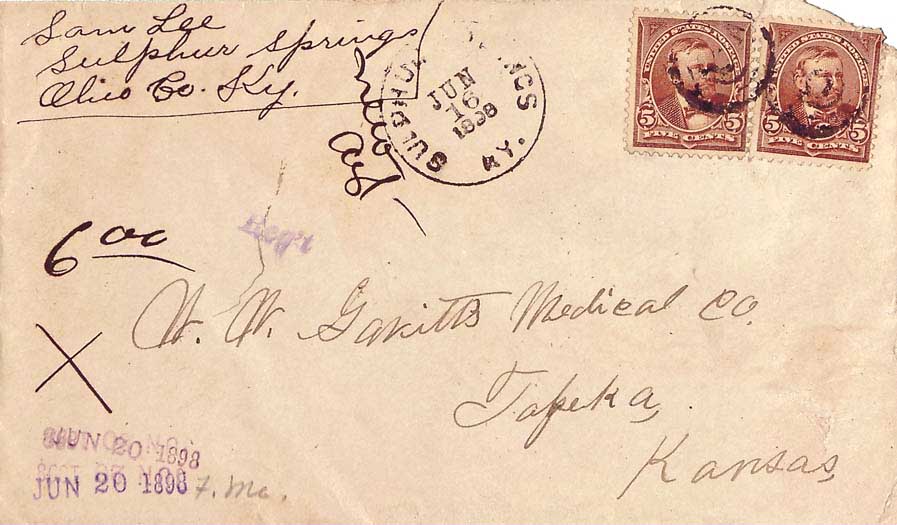 Sam Lee
Sulphur Springs
Ohio Co. Ky.
SULPHUR SPRINGS
JUN
16
1898
KY.
UNITED STATES
5 FIVE CENTS 5
UNITED STATES
5 FIVE CENTS 5
6 00
Reg't
W. W. Gavitts Medical Co.
Topeka,
Kansas,
X
JUN 20 1898
JUN 20 1898